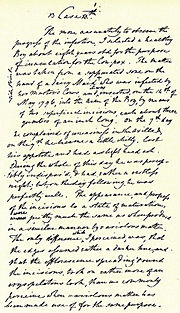 Case
The more accurately to observe the
progress of the infection, I selected a healthy
Boy about eight years old for the purpose
of inoculation for the Cow pox. The matter
was taken from a suppurated sore on the
hand of a dairymaid who was infected by
her Masters Cows, and inserted on the 14th of
May 1796, into the arm of the Boy by means
of two superficial incisions, each about three
quarters of an inch long. On the 7th day
he complained of uneasiness in the axilla, &
on the 9th he became a little chilly, lost
his appetite and had a slight head ach.
During the whole of this day he was percep-
tibly indispos'd, & had rather a restless
night; but on the day following he was
perfectly well. The appearance and progress
of the incisions to a state of maturation,
were pretty much the same as when produced
in a similar manner by variolous matter.
The only difference which I perceived was that
the edges assumed rather a darker hue, and
that the efflorescence spreading round
the incisions, took on rather more of an
erysipelatous look, than we commonly
perceive when variolous matter has
been made use of for the same purpose.